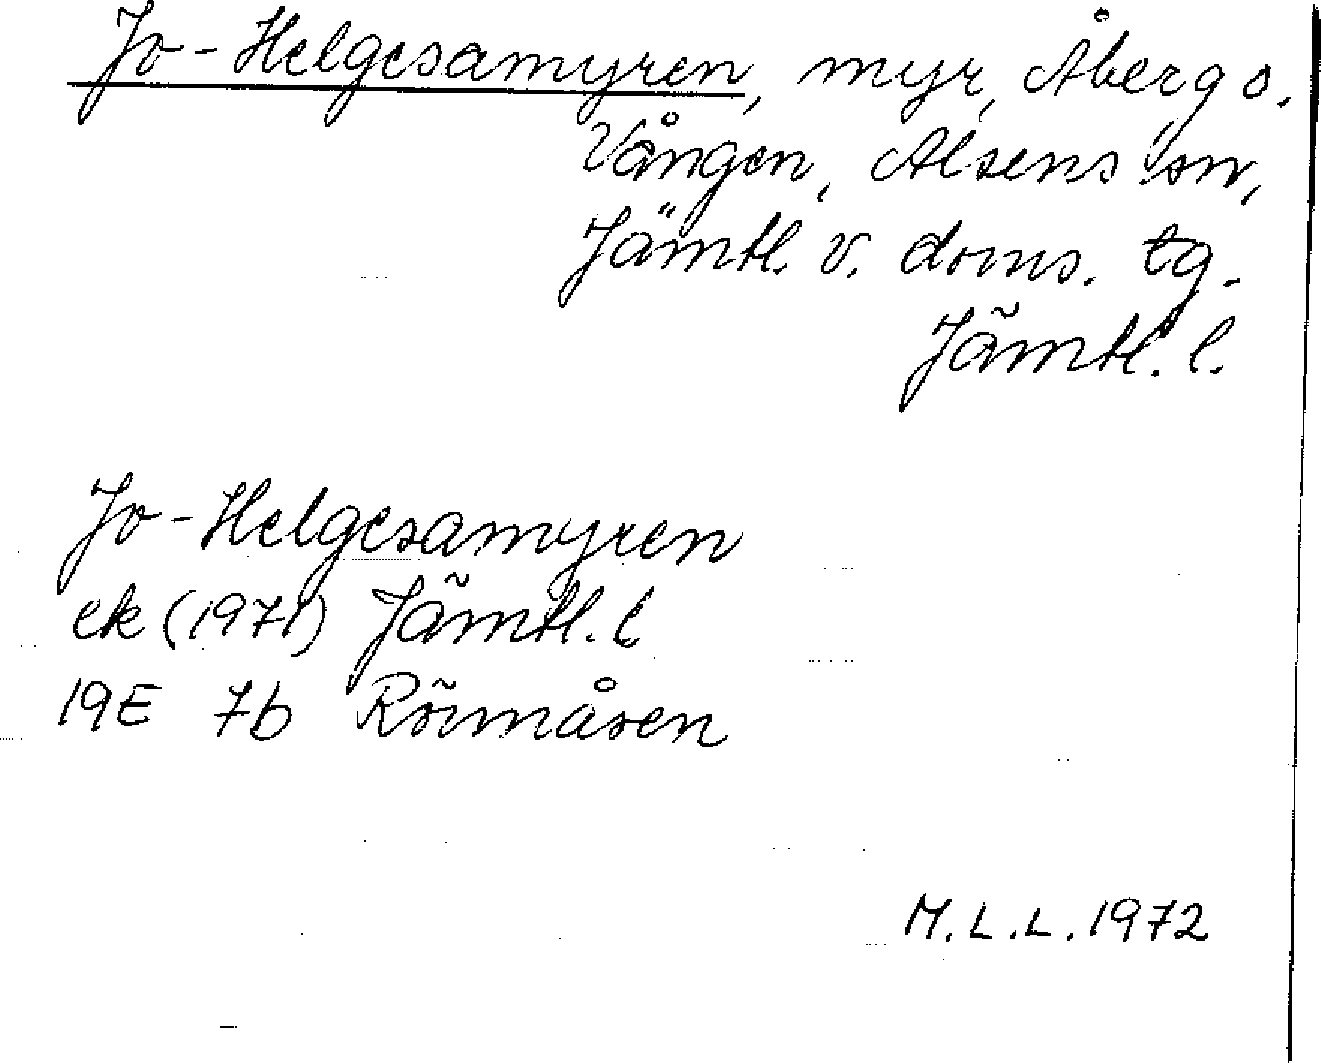 Jo-Helgesamyren, myr, Åberg o.
Vången, Alsens sn,
Jämtl. v. doms. tg.
Jämtl. l.
Jo-Helgesamyren
ek (1971) Jämtl. l
19E 7b Rörmåsen
M.L.L. 1972